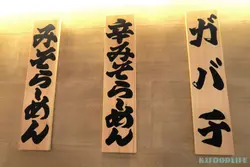 ガバチ
辛みそらーめん
みそらーめん
KJFOODLIFE